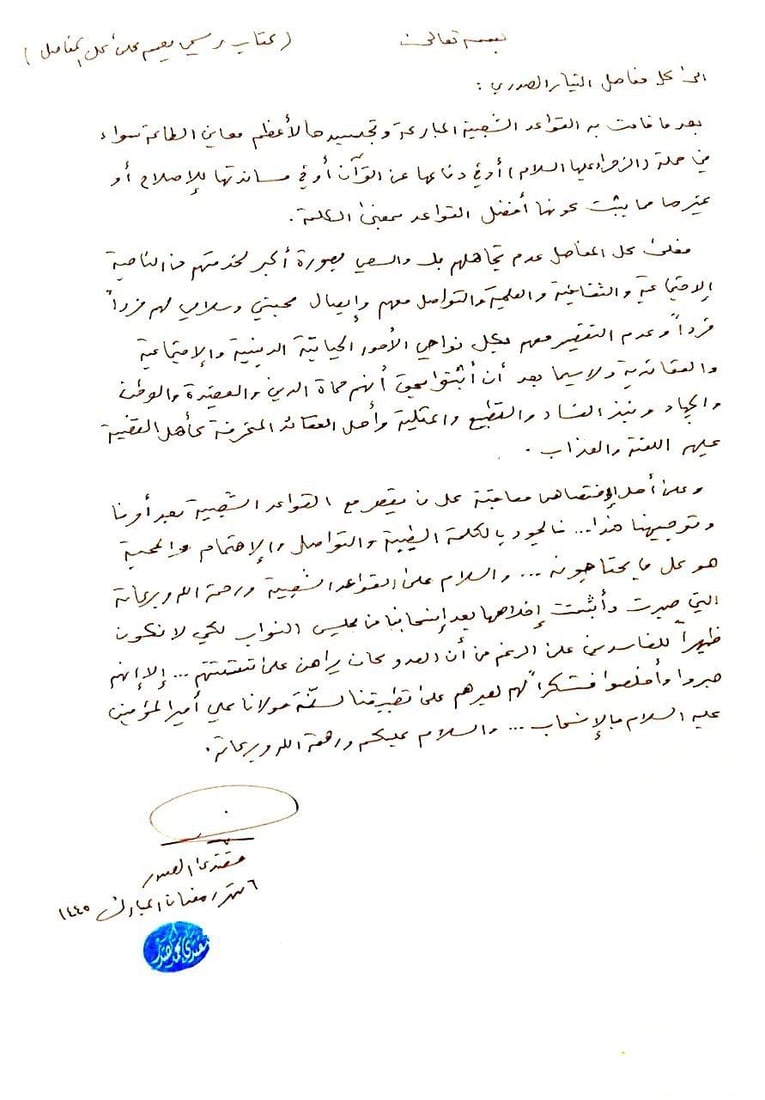 بسمه تعالى (كتاب رسمي يعمم على كل المفاصل)
الى كل مفاصل التيار الصدري :
بعد ما قامت به القواعد الشعبية المباركة وتجسيدها لأعظم معاني الطاعة سواء
في حملة (الزهراء عليها السلام) أو في دفاعها عن القرآن أو في مساندتها للإصلاح أو
غيرها مما يثبت كونها أفضل القواعد بمعنى الكلمة .
فعلى كل المفاصل عدم تجاهلهم بل والسعي بصورة أكبر لخدمتهم من الناحية
الإجتماعية والثقافية والعلمية والتواصل معهم وإيصال محبتي وسلامي لهم فرداً
فرداً وعدم التقصير معهم بكل نواحي الأمور الحياتية الدينية والإجتماعية
والعقائدية ولاسيما بعد أن أثبتوا بحق أنهم حماة الدين والعقيدة والوطن
والجهاد ونبذ الفساد والتطبيع والمثلية وأهل العقائد المنحرفة كأهل القضية
عليهم اللعنة والعذاب .
وعلى أهل الإختصاص معاقبة كل من يقصر مع القواعد الشعبية بعد أمرنا
وتوجيهنا هذا... فالجود بالكلمة الطيبة والتواصل والإهتمام والمحبة
هو كل ما يحتاجونه ... والسلام على القواعد الشعبية ورحمة الله وبركاته
التي صبرت وأثبتت إخلاصها بعد إنسحابنا من مجلس النواب لكي لا نكون
ظهيراً للفاسدين على الرغم من أن العدو كان يراهن على تشتتهم ... إلا إنهم
صبروا وأخلصوا فشكراً لهم لصبرهم على تطبيقنا لسنّة مولانا علي أمير المؤمنين
عليه السلام بالإنسحاب ... والسلام عليكم ورحمة الله وبركاته .
مقتدى الصدر
٦ شهر رمضان المبارك ١٤٤٥